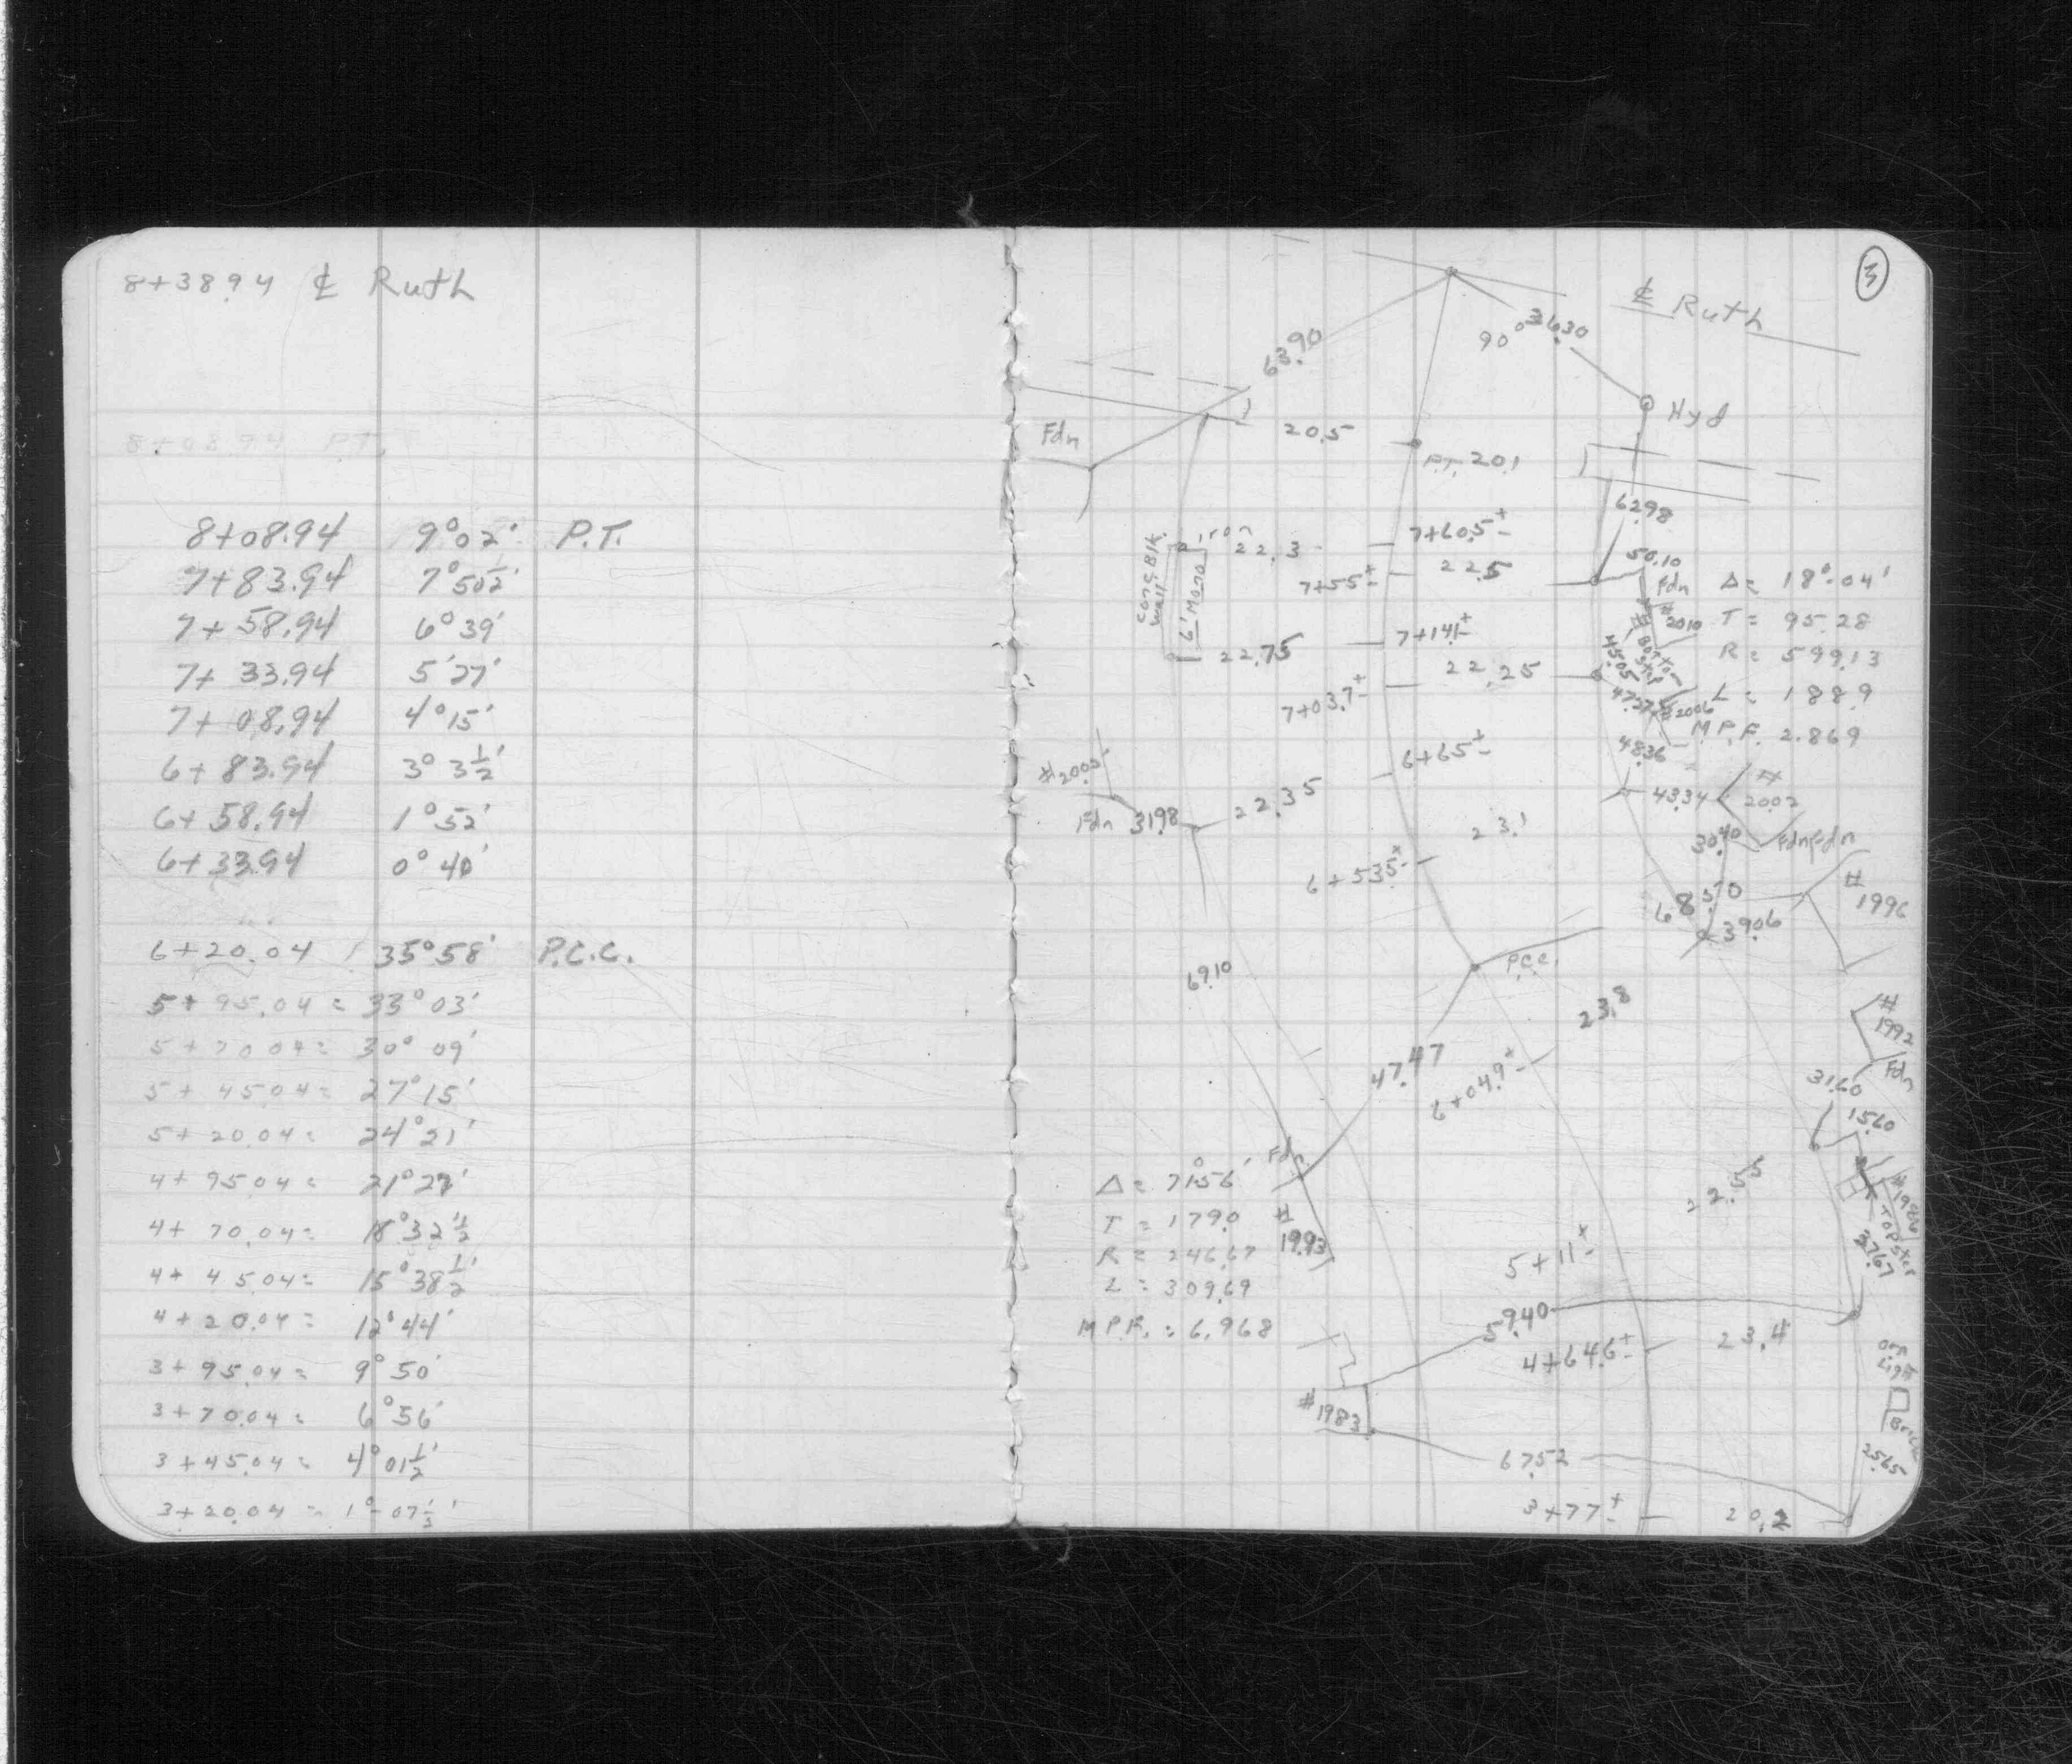 8+38.94 ℄ Ruth
8+08.94 P.T.
8+08.94 9°02' P.T.
7+83.94 7°50½'
7+58.94 6°39'
7+33.94 5°27'
7+08.94 4°15'
6+83.94 3°3½'
6+58.94 1°52'
6+33.94 0°40'
6+20.04 35°58' P.C.C.
5+95.04 = 33°03'
5+70.04 = 30°09'
5+45.04 = 27°15'
5+20.04 = 24°21'
4+95.04 = 21°27'
4+70.04 = 18°32½'
4+45.04 = 15°38½'
4+20.04 = 12°44'
3+95.04 = 9°50'
3+70.04 = 6°56'
3+45.04 = 4°01½'
3+20.04 = 1°-07½'
3
℄ Ruth
90° 36.30
63.90
Hyd
Fdn
20.5
P.T. 20.1
62.98
Iron
22.3
7+60.5±
50.10
Conc Blk. Wall
6' Mono
7+55±
22.5
Fdn
# 2010
Δ = 18°-04'
T = 95.28
R = 599.13
L = 188.9
M.P.F. 2.869
22.75
7+14.1±
22.25
Bottom Step
45.05
47.27
#2006
7+03.7±
48.36
6+65±
#2005
Fdn 31.98
22.35
43.34
# 2002
23.1
30.40
Fdn Fdn
6+53.5±
# 1996
68.50
39.06
P.C.C.
69.10
23.8
# 1992
Fdn
47.47
6+04.9±
31.60
15.60
Fdn
Δ = 71°56'
T = 179.0
R = 246.67
L = 309.69
M.P.F. = 6.968
# 1993
22.55
Top Step
37.67
5+11±
59.40
4+64.6±
23.4
Light
#1983
Brick
25.65
67.52
3+77±
20.2